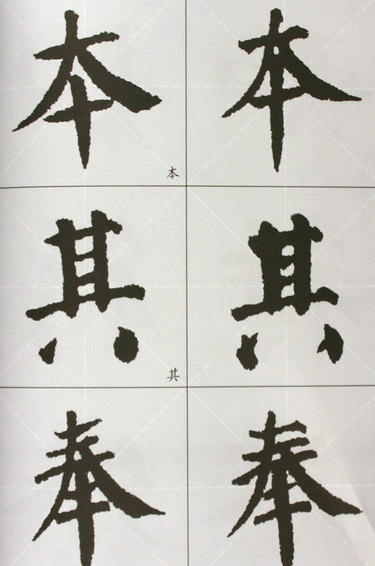 本 本
本
其 其
其
奉 奉